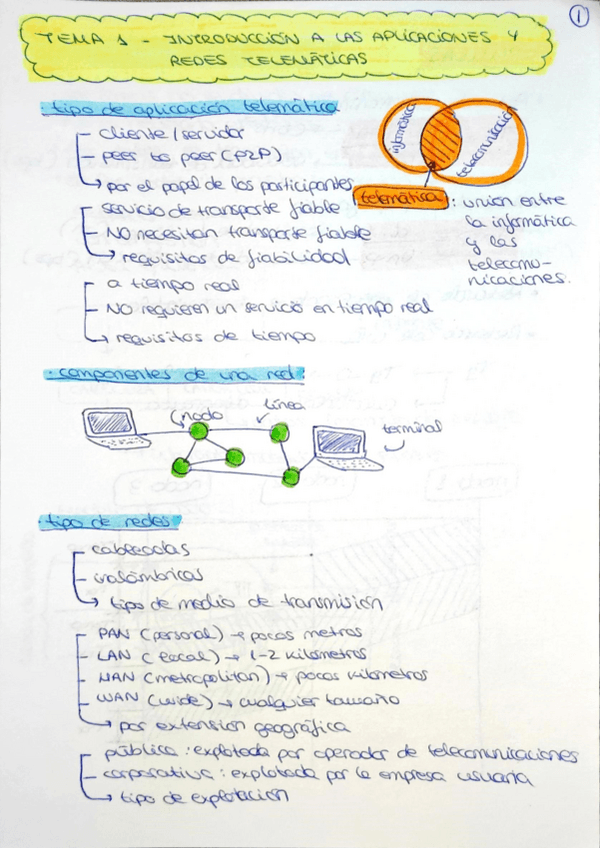 1
TEMA 1 - INTRODUCCIÓN A LAS APLICACIONES Y
REDES TELEMÁTICAS
· tipo de aplicación telemática
- cliente/servidor
- peer to peer (P2P)
→ por el papel de los participantes
informática
telecomunicación
telemática : unión entre
la informática
y las
telecomu-
nicaciones.
- servicio de transporte fiable
- NO necesitan transporte fiable
→ requisitos de fiabilidad
- a tiempo real
- NO requieren un servicio en tiempo real
→ requisitos de tiempo
· componentes de una red:
nodo
línea
terminal
· tipo de redes
- cableadas
- inalámbricas
→ tipo de medio de transmisión
- PAN (personal) → pocos metros
- LAN (local) → 1-2 kilómetros
- MAN (metropolitan) → pocos kilómetros
- WAN (wide) → cualquier tamaño
→ por extensión geográfica
- pública : explotada por operador de telecomunicaciones
- corporativa : explotada por la empresa usuaria
→ tipo de explotación